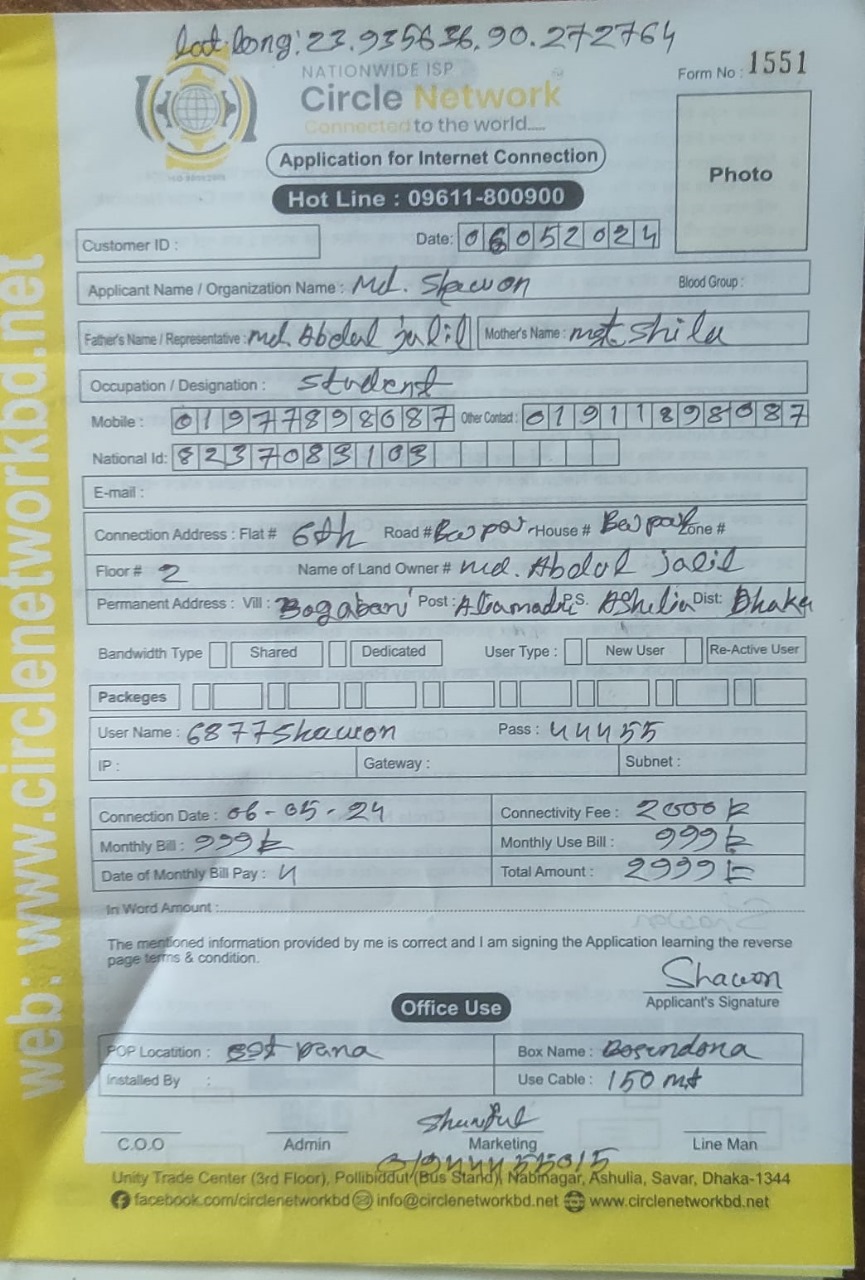 lat-long: 23.935636, 90.272764
NATIONWIDE ISP
Circle Network
Connected to the world.....
Form No : 1551
Application for Internet Connection
Photo
Hot Line : 09611-800900
Customer ID :
Date: 06052024
Applicant Name / Organization Name : Md. Shawon Blood Group :
Father's Name / Representative : md. Abdul jalil Mother's Name : mst. Shila
Occupation / Designation : Student
Mobile : 01977898087 Other Contact : 01911898087
National Id: 8237083103
E-mail :
Connection Address : Flat # 6th Road # House # Zone #
Floor # 2 Name of Land Owner # md. Abdul jalil
Permanent Address : Vill : Bogabari Post : P.S. AShulia Dist: Dhaka
Bandwidth Type Shared Dedicated User Type : New User Re-Active User
Packeges
User Name : 6877Shawon Pass : 44455
IP : Gateway : Subnet :
Connection Date : 06-05-24 Connectivity Fee : 2000
Monthly Bill : 999 Monthly Use Bill : 999
Date of Monthly Bill Pay : 4 Total Amount : 2999
In Word Amount :
The mentioned information provided by me is correct and I am signing the Application learning the reverse
page terms & condition.
Shawon
Applicant's Signature
Office Use
POP Locatition : Box Name :
Installed By : Use Cable : 150 mt
C.O.O Admin Marketing Line Man
Unity Trade Center (3rd Floor), Pollibiddut (Bus Stand), Nabinagar, Ashulia, Savar, Dhaka-1344
facebook.com/circlenetworkbd info@circlenetworkbd.net www.circlenetworkbd.net
web: www.circlenetworkbd.net